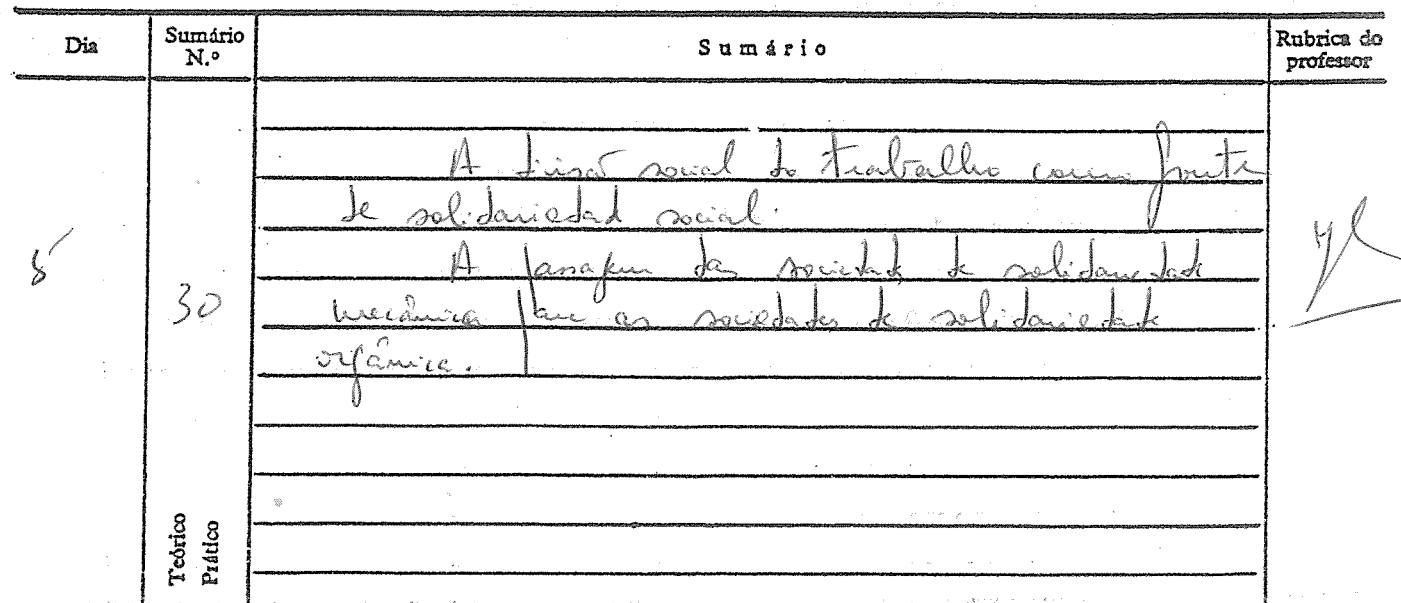 Dia
Sumário N.º
Sumário
Rubrica do professor
A divisão social do trabalho como fonte
de solidariedade social.
A passagem das sociedades de solidariedade
mecânica para as sociedades de solidariedade
orgânica.
30
Teórico
Prático